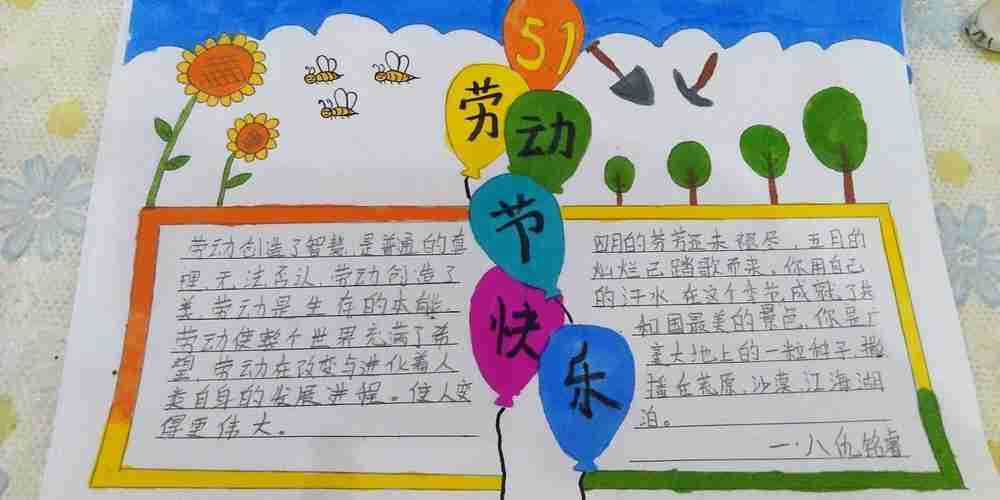 51
劳动节快乐
劳动创造了智慧,是普通的真
理,无法否认,劳动创造了
美,劳动是生存的本能,
劳动使整个世界充满了希
望,劳动在改变与进化着人
类自身的发展进程。使人变
得更伟大。
四月的芬芳还未褪尽,五月的
灿烂已踏歌而来。你用自己
的汗水,在这个季节,成就了共
和国最美的景色,你是广
袤大地上的一粒种子,撒
播在荒原、沙漠、江海湖
泊。
一·八仇铭睿